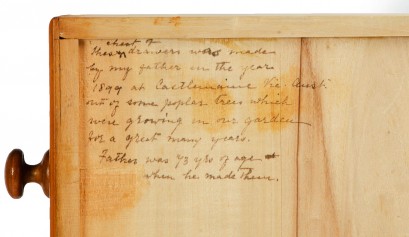 chest of
These drawers was made
by my father in the year
1899 at Castlemaine Vic. Aust
out of some popler trees which
were growing in our garden
for a great many years.
Father was 73 yrs of age
when he made them.